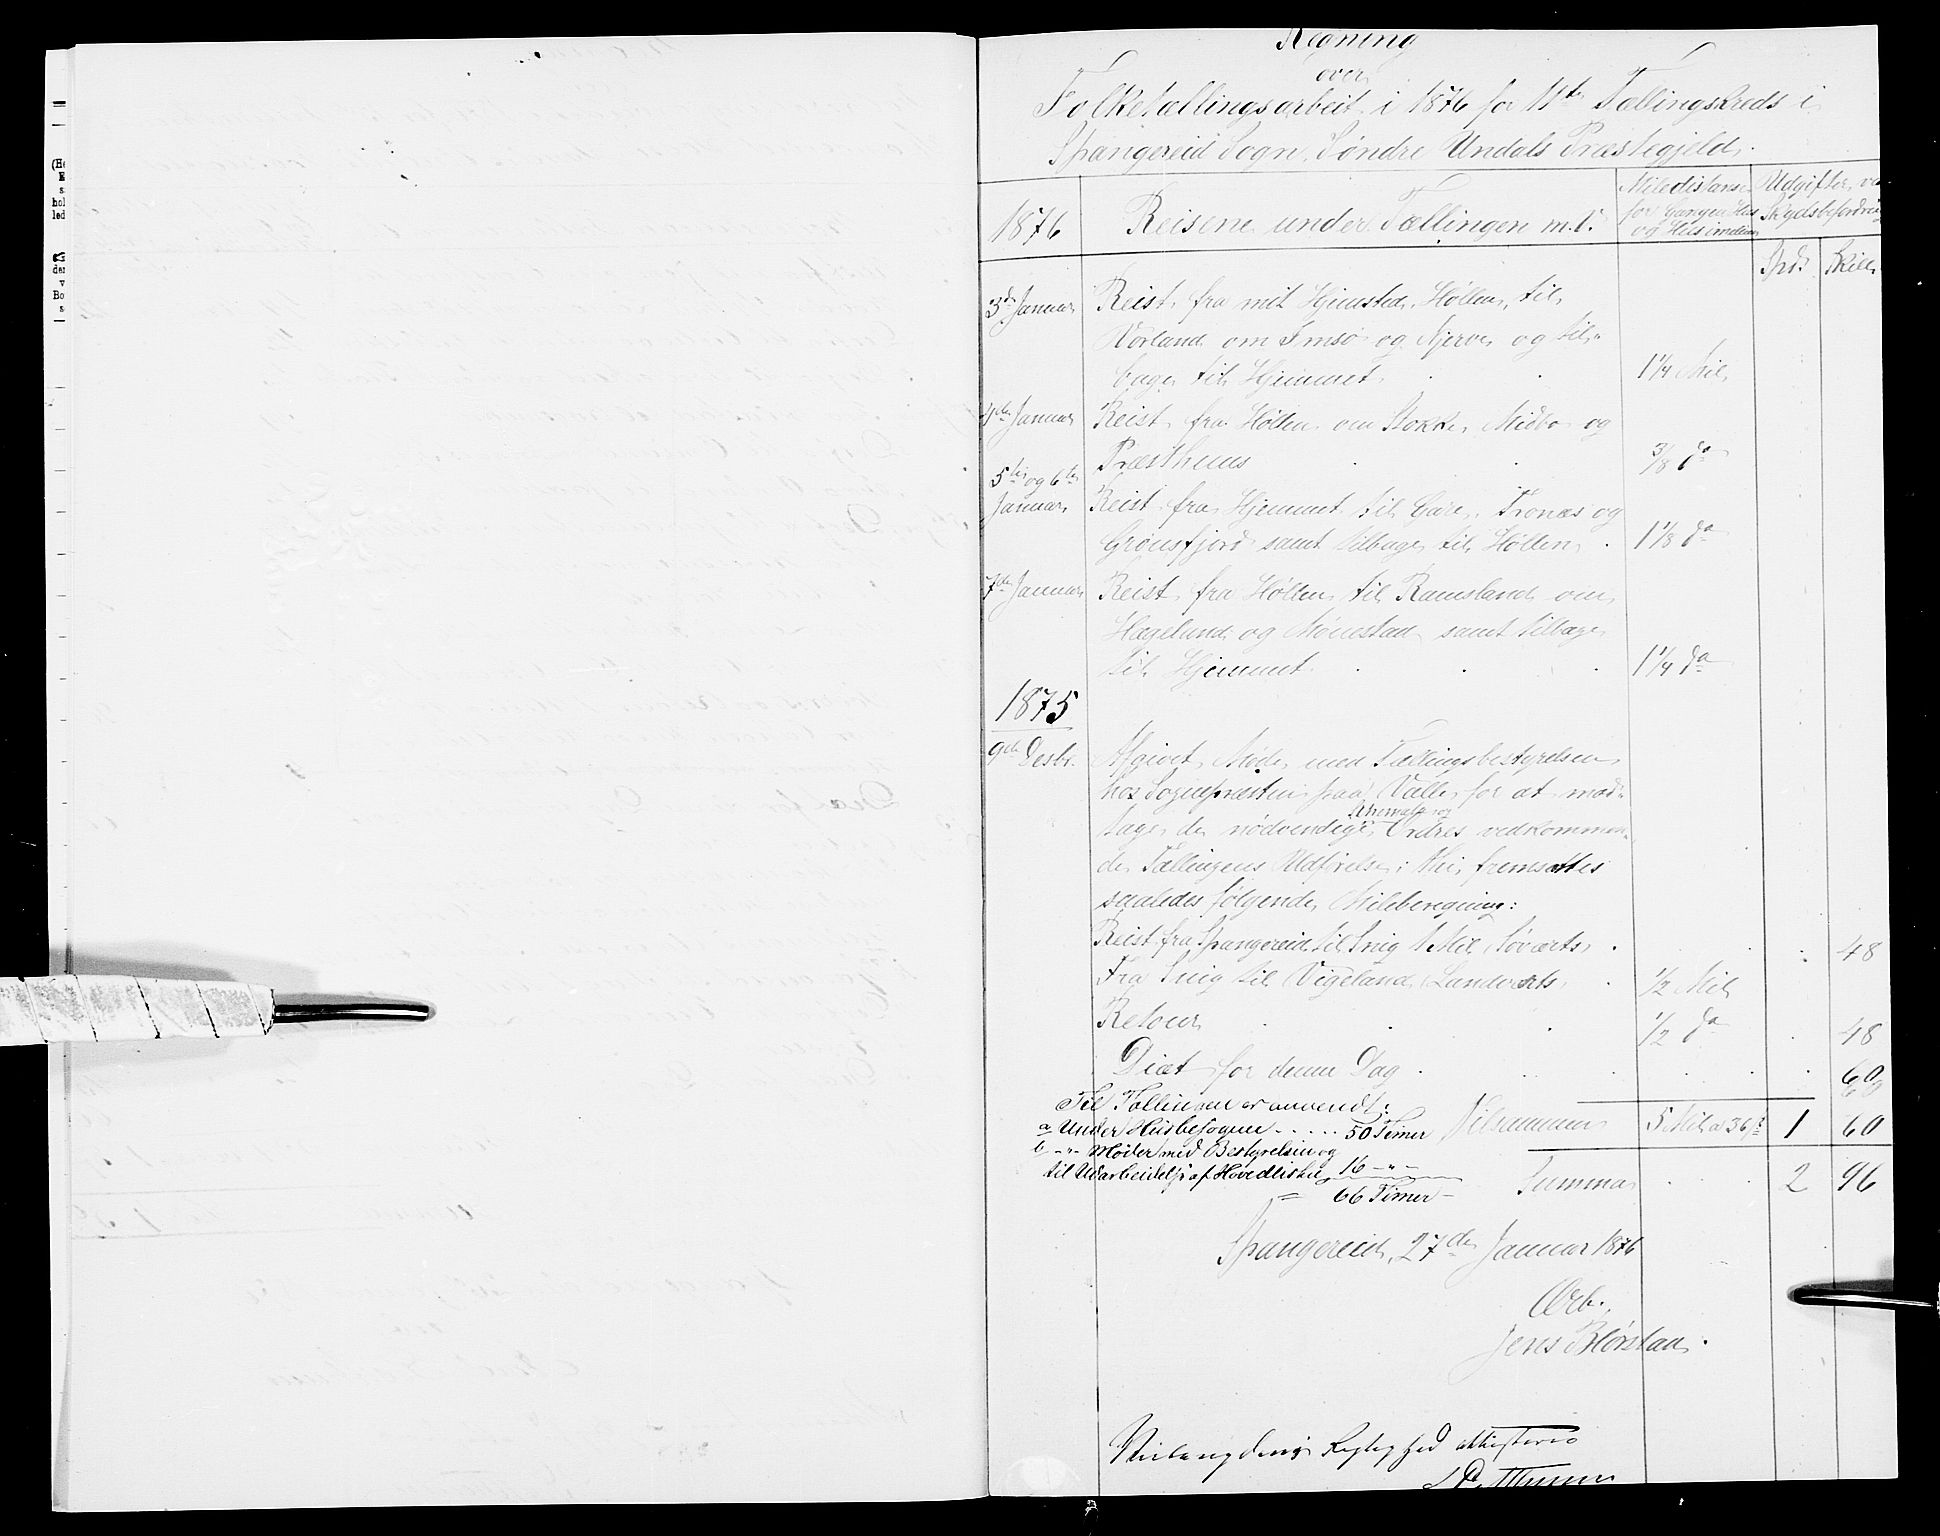 Regning
over
Folketællingsarbeit i 1876 for 11te Tællingskreds i
Spangereid Sogn, Søndre Undals Præstegjeld.
1876
Reisene under Tællingen m.V.
Miledistanse for Gangen Hus og Hus imellem
Udgifter ved Skydsbefordring
Spd. Skill.
3de Januar Reist fra mit Hjemsted, Høllen, til
Vorland om Imsø og Njerve og til-
bage til Hjemmet. 1 1/4 Mil
4de Januar Reist fra Høllen om Stokke, Midbø og
Præsthuus 3/8 do
5te og 6te Januar Reist fra Hjemmet til Gare, Fronæs og
Grønsfjord samt tilbage til Høllen. 1 1/8 do
7de Januar Reist fra Høllen til Ramsland om
Hægelund og Mønestad samt tilbage
til Hjemmet. 1 1/4 do
1875
9de Desbr. Afgivet Møde med Tællingsbestyrelsen
hos Sognepræsten paa Valle for at mod-
tage de nødvendige Schemata og Ordres vedkommen-
de Tællingens Udførelse; fremsættes
saaledes følgende Mileberegning:
Reist fra Spangereid til Snig 1 Mil Søværts. 48
Fra Snig til Vigeland, Landværts, 1/2 Mil
Retour 1/2 do 48
Diæt for denne Dag 60
Til Tællingen er anvendt:
a Under Husbesøgene ..... 50 Timer Tilsammen 5 Mil a 36 ß 1 60
b -"- Møder med Bestyrelsen og
til Udarbeidelse af Hovedlisten 16 -"-
= 66 Timer - Summa 2 96
Spangereid, 27de Januar 1876
Ærb.
Jens B Hørstad.
Rigtighed attesteres